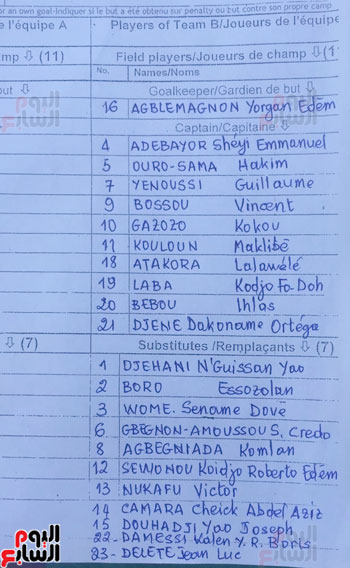 or an own goal-Indiquer si le but a été obtenu sur penalty ou but contre son propre camp
e l'équipe A Players of Team B/Joueurs de l'équipe
mp (11) Field players/Joueurs de champ (1
No. Names/Noms
ut Goalkeeper/Gardien de but
16 AGBLEMAGNON Yorgan Edem
Captain/Capitaine
4 ADEBAYOR Shéyi Emmanuel
5 OURO-SAMA Hakim
7 YENOUSSI Guillaume
9 BOSSOU Vincent
10 GAZOZO Kokou
11 KOULOUN Maklibè
18 ATAKORA Lalawélé
19 LABA Kodjo Fo-Doh
20 BEBOU Ihlas
21 DJENE Dakoname Ortéga
(7) Substitutes /Remplaçants (7)
1 DJEHANI N'Guissan Yao
2 BORO Essozolan
3 WOME. Sename Dové
6 GBEGNON-AMOUSSOU S, Credo
8 AGBEGNIADA Komlan
12 SEWONOU Koidjo Roberto Edém
13 NUKAFU Victor
14 CAMARA Cheick Abdel Aziz
15 DOUHADJI Yao Joseph
22- DAMESSI Kalen Y. R. Boris
23- DELETE Jean Luc
اليوم السابع